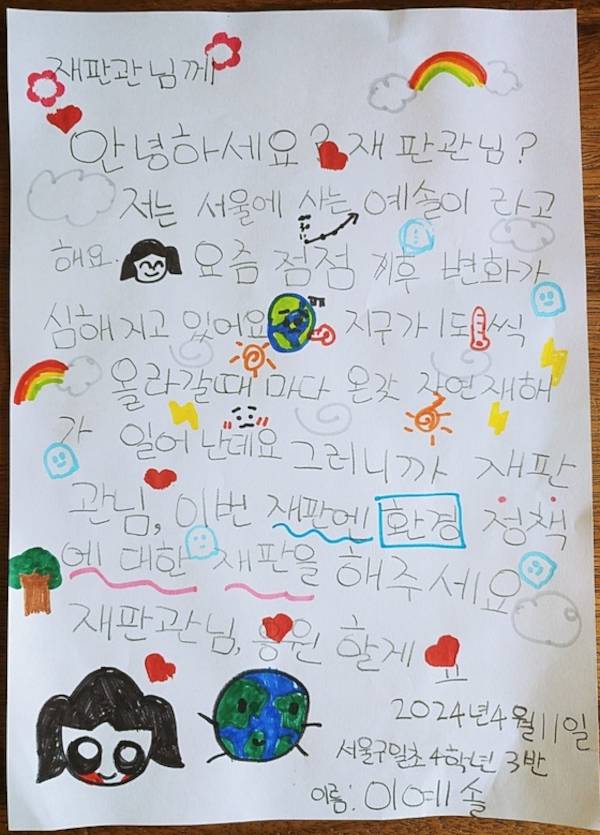 재판관님께
안녕하세요? 재판관님?
저는 서울에 사는 예솔이 라고
해요. 요즘 점점 기후 변화가
심해 지고 있어요 지구가 1도씩
올라갈때 마다 온갖 자연재해
가 일어 난데요 그러니까 재판
관님, 이번 재판엔 환경 정책
에 대한 재판을 해주세요
재판관님, 응원 할게요
2024년4월11일
서울구일초4학년 3반
이름: 이예솔